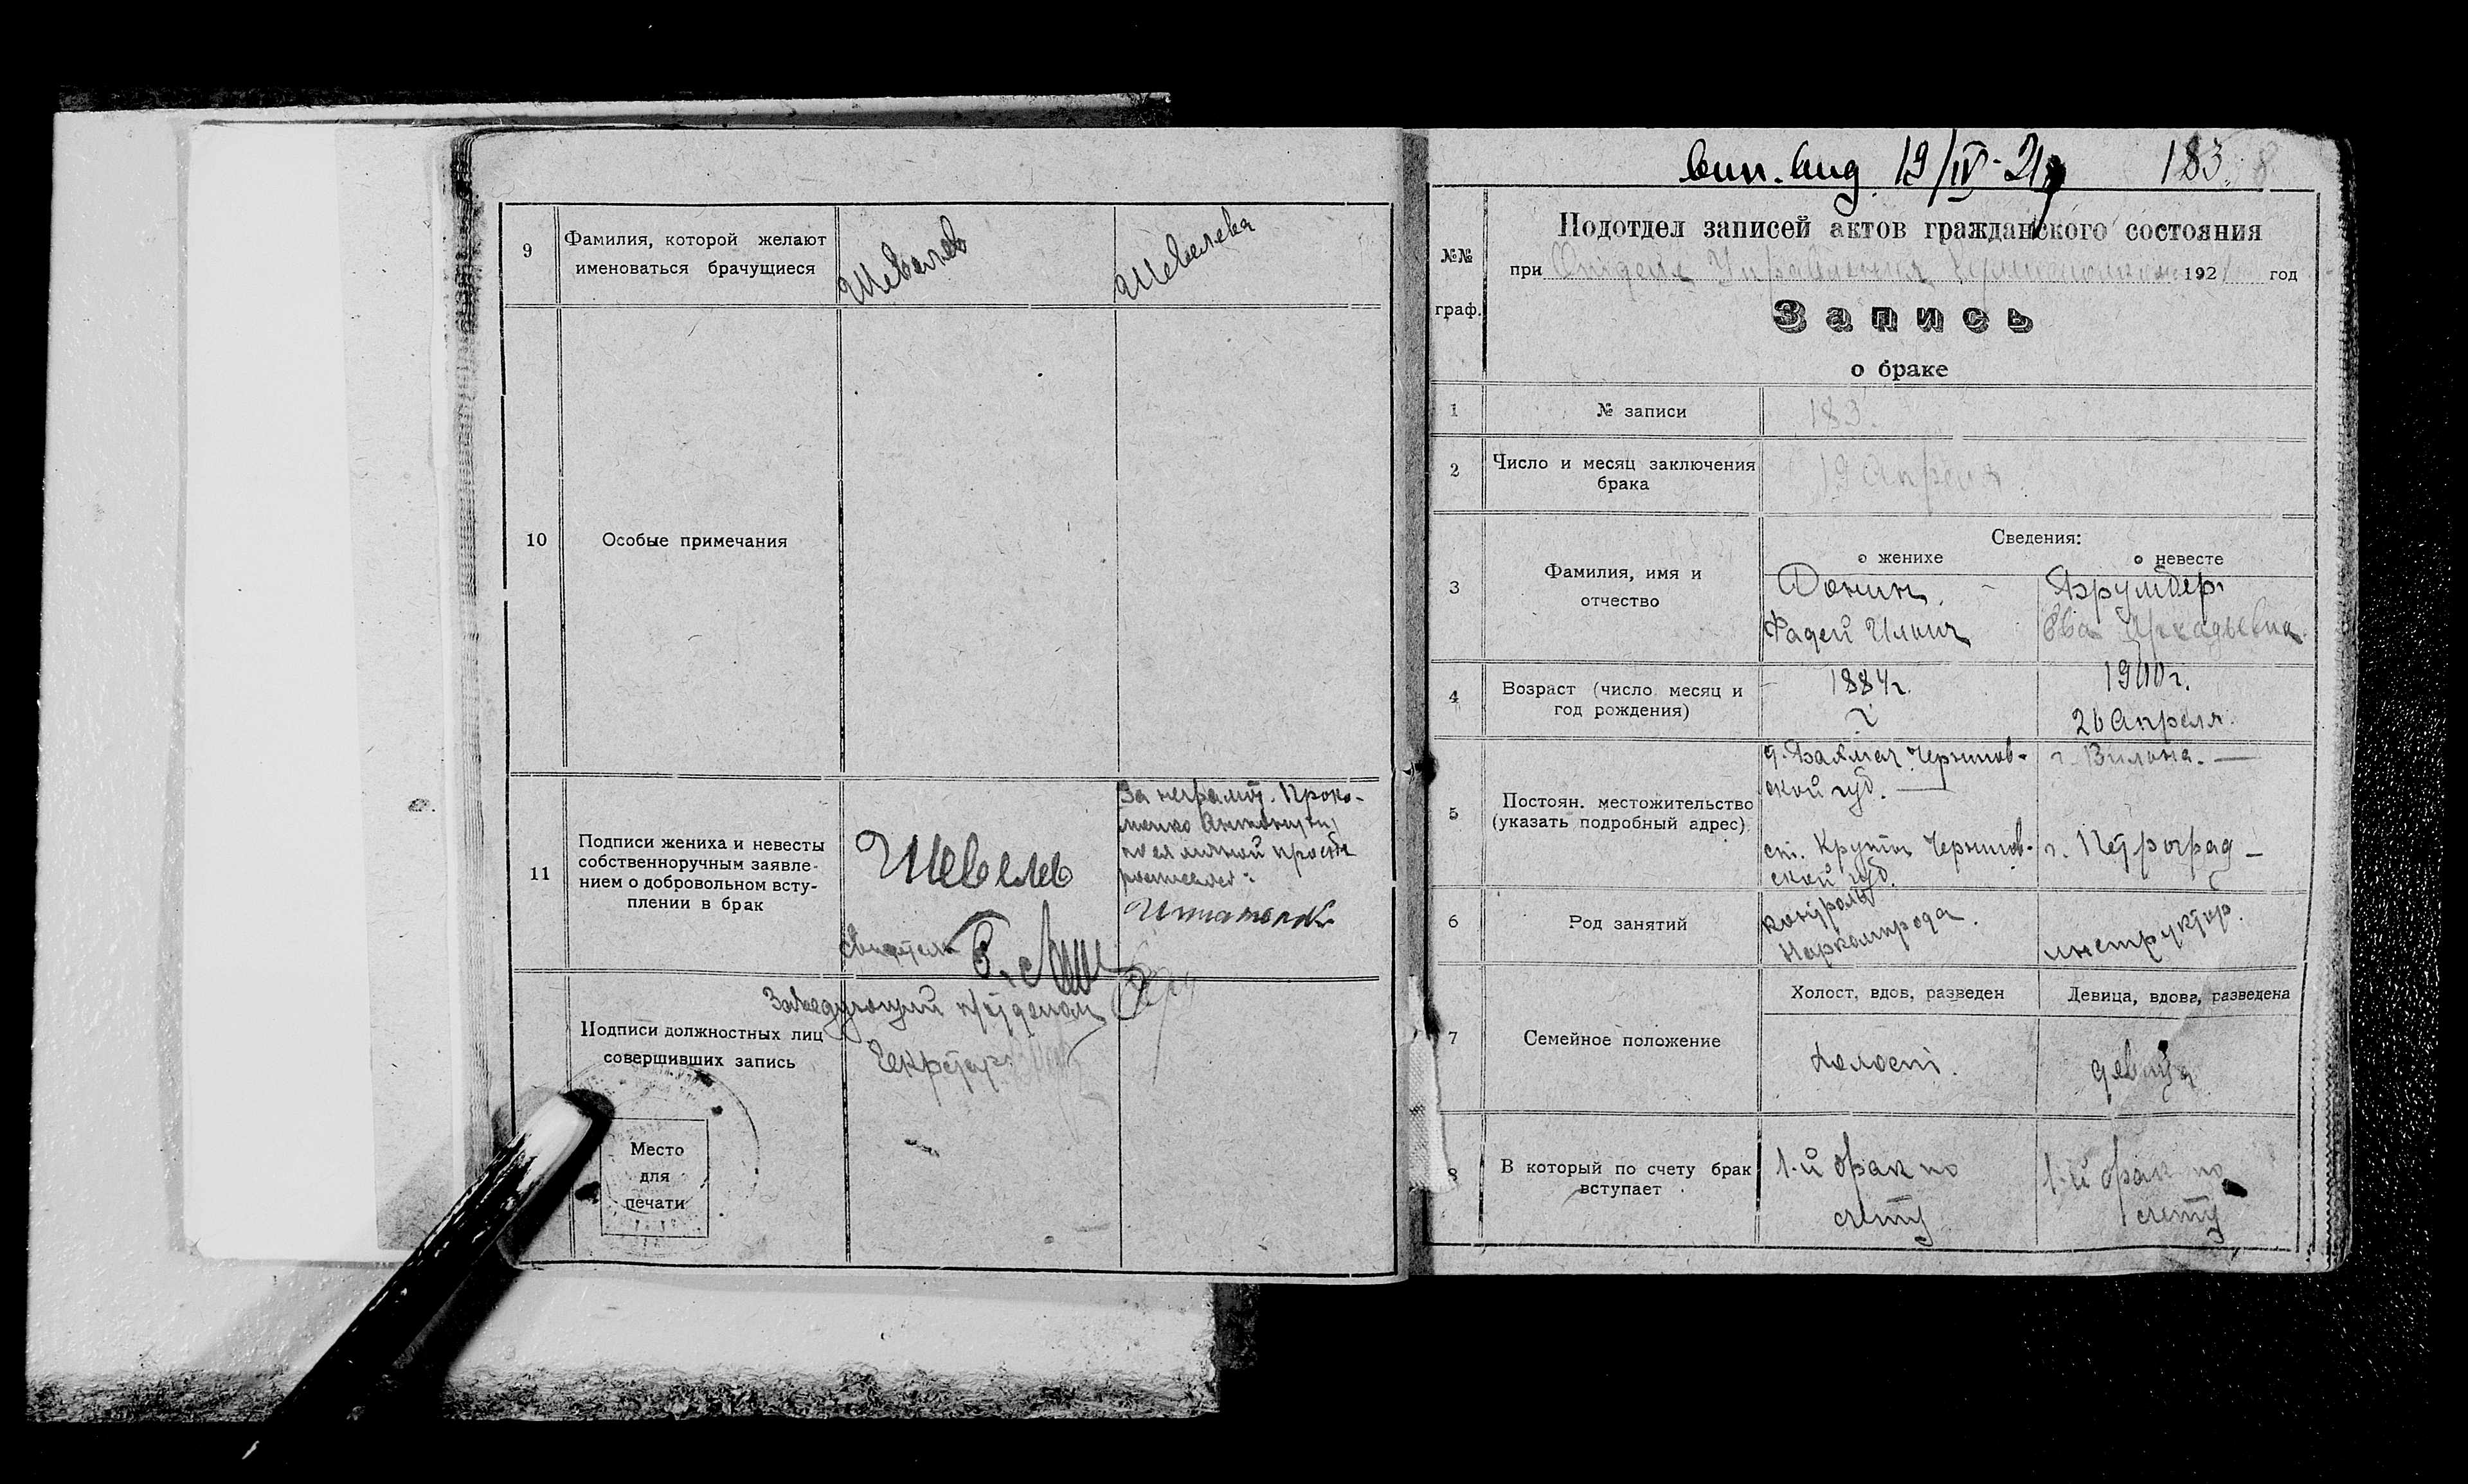 9
Фамилия, которой желают
именоваться брачущиеся
Шевелев
Шевелева
10
Особые примечания
11
Подписи жениха и невесты
собственноручным заявле-
нием о добровольном всту-
плении в брак
Шевелев
За неграмотн. Проко-
по ея личной просьбе
Заведующий п/отделом
Секретарь
Подписи должностных лиц
совершивших запись
Место
для
печати
вид 19/IV-21 183
№№
граф.
Подотдел записей актов гражданского состояния
при Отделе Управления 1921 год
Запись
о браке
1
№ записи
183.
2
Число и месяц заключения
брака
19 Апреля
3
Фамилия, имя и
отчество
Сведения:
о женихе
о невесте
Донин
Фадей Ильич
Ева Аркадьевна
4
Возраст (число месяц и
год рождения)
1884 г.
1900 г.
26 Апреля
5
Постоян. местожительство
(указать подробный адрес)
д. Бахмач Чернигов-
ской губ.
г. Вильна. —
ст. Круты Чернигов-
ской губ.
г. Петроград —
6
Род занятий
Контролер
Наркомпрода.
инструктор.
7
Семейное положение
Холост, вдов, разведен
Девица, вдова, разведена
холост.
девица
8
В который по счету брак
вступает
1-й брак по
счету
1-й брак по
счету